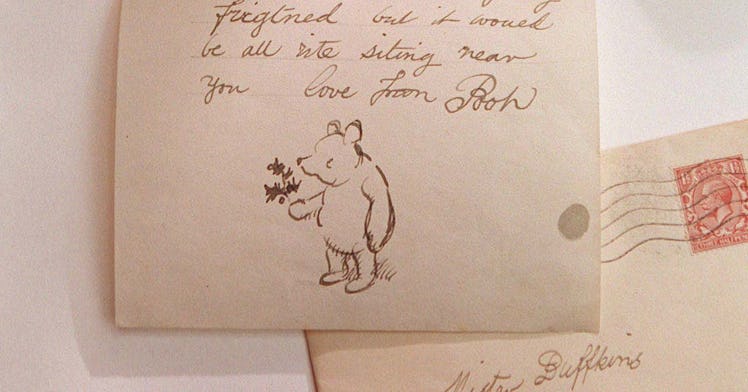 frigtned but it would
be all rite siting near
you love from Pooh
Mister Duffkins